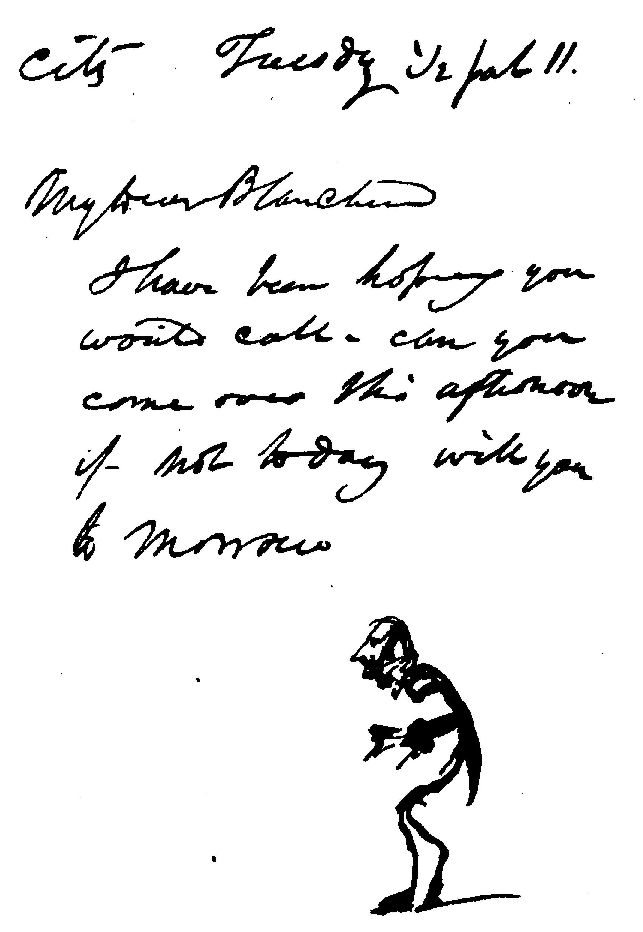 City Tuesday 1/2 past 11.
My dear Blanchard
I have been hoping you
would call - can you
come over this afternoon
if not today will you
to morrow